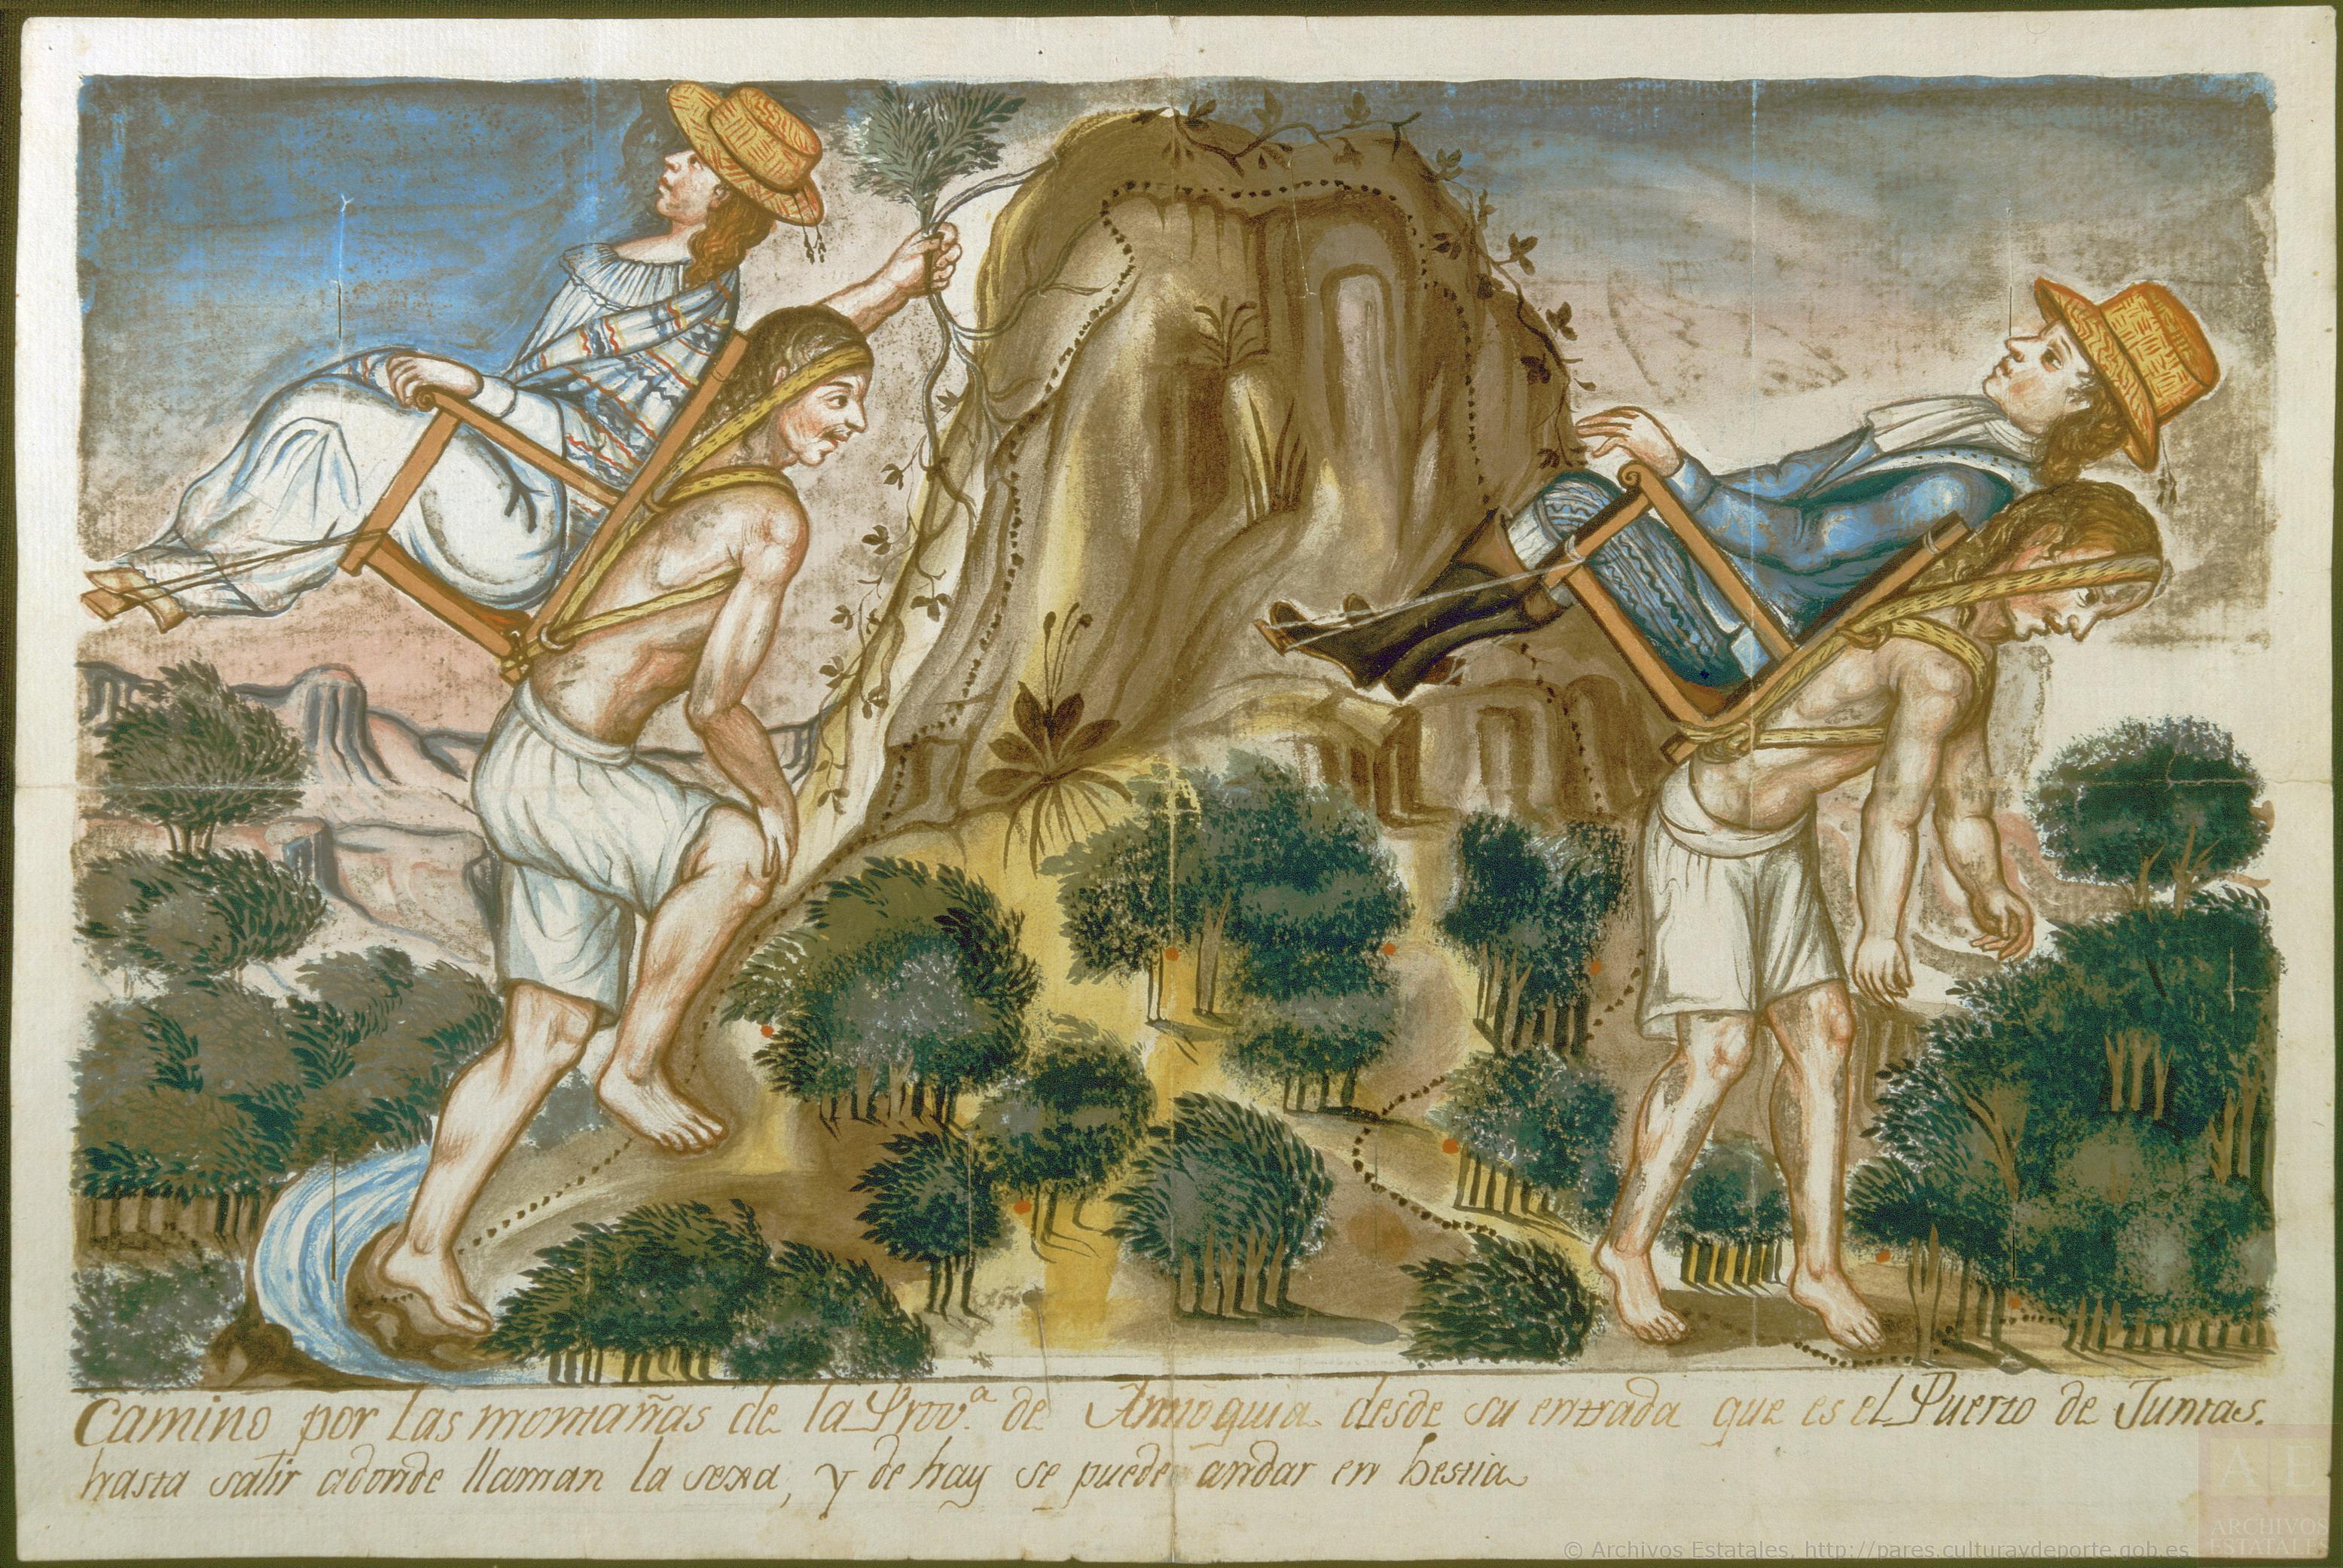 Camino por las montañas de la Prov.ª de Antioquia desde su entrada que es el Puerto de Juntas.
hasta salir adonde llaman la sexa, y de hay se puede andar en bestia
A E
ARCHIVOS
ESTATALES
© Archivos Estatales, http://pares.culturaydeporte.gob.es